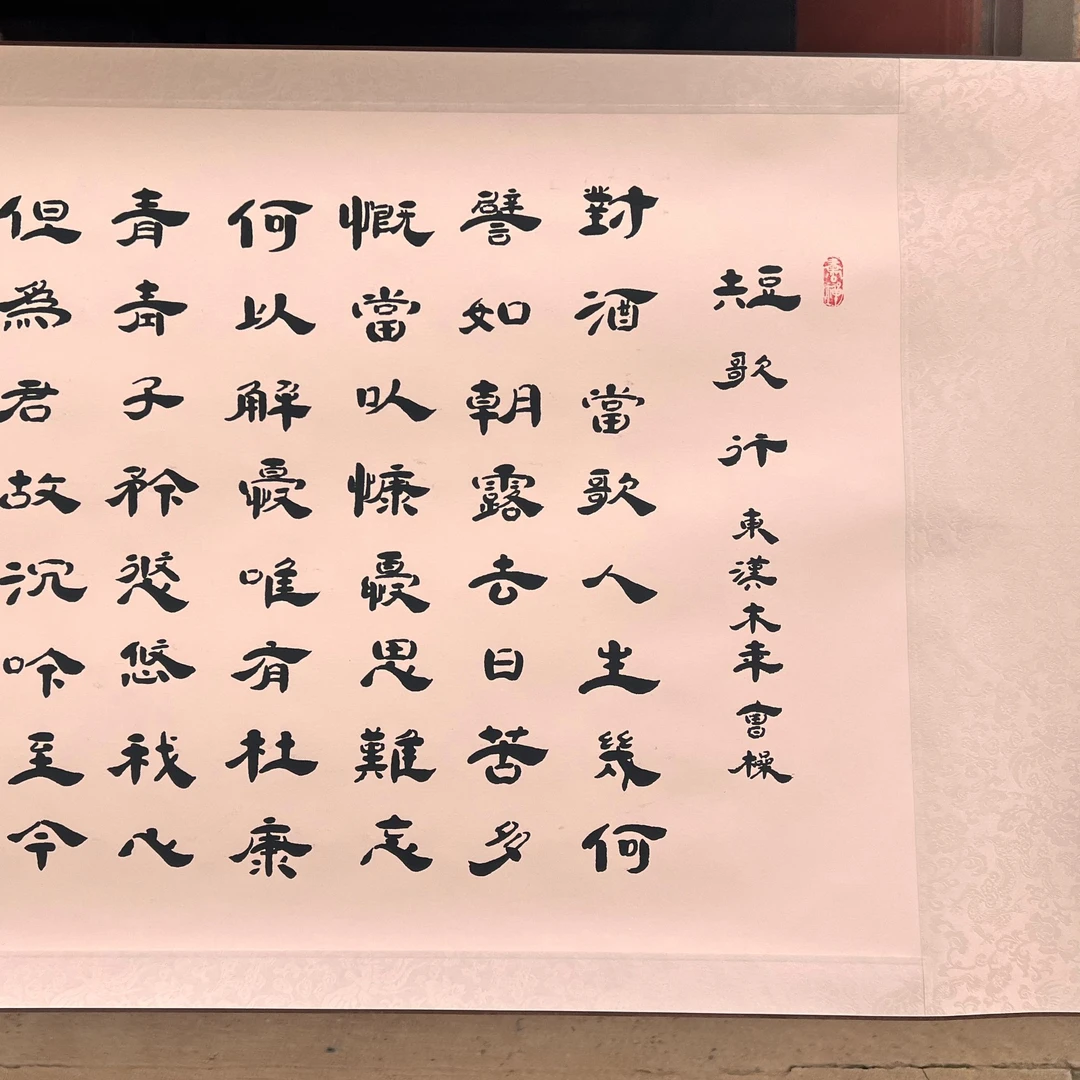 短歌行 東漢末年曹操
對酒當歌人生幾何
譬如朝露去日苦多
慨當以慷憂思難忘
何以解憂唯有杜康
青青子衿悠悠我心
但爲君故沉吟至今